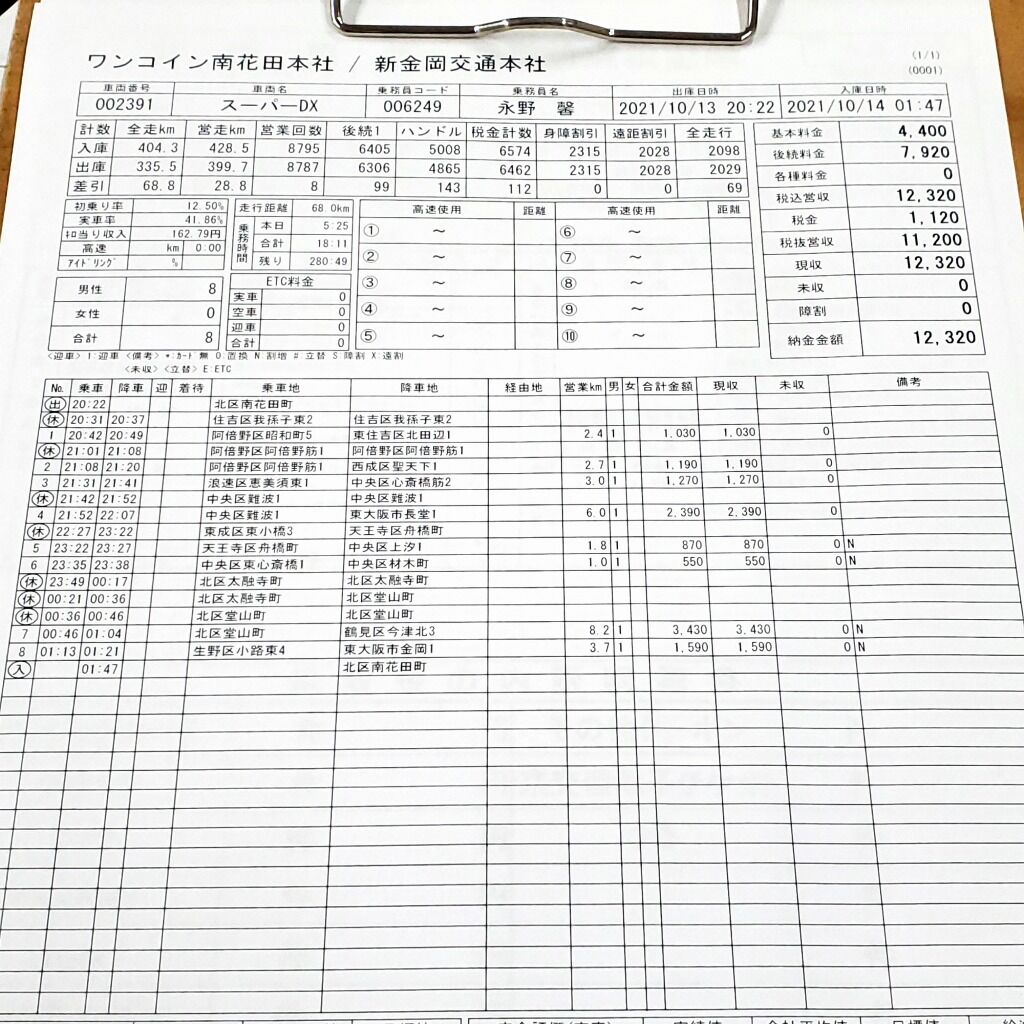 ワンコイン南花田本社 / 新金岡交通本社
(1/1)
(0001)
車両番号 車両名 乗務員コード 乗務員名 出庫日時 入庫日時
002391 スーパーDX 006249 永野 馨 2021/10/13 20:22 2021/10/14 01:47
計数 全走km 営走km 営業回数 後続1 ハンドル 税金計数 身障割引 遠距割引 全走行
入庫 404.3 428.5 8795 6405 5008 6574 2315 2028 2098
出庫 335.5 399.7 8787 6306 4865 6462 2315 2028 2029
差引 68.8 28.8 8 99 143 112 0 0 69
基本料金 4,400
後続料金 7,920
各種料金 0
税込営収 12,320
税金 1,120
税抜営収 11,200
現収 12,320
未収 0
障割 0
納金金額 12,320
初乗り率 12.50%
実車率 41.86%
キロ当り収入 162.79円
高速 km 0:00
アイドリング %
走行距離 68.0km
乗務時間
本日 5:25
合計 18:11
残り 280:49
高速使用 距離 高速使用 距離
① ～ ⑥ ～
② ～ ⑦ ～
③ ～ ⑧ ～
④ ～ ⑨ ～
⑤ ～ ⑩ ～
男性 8
女性 0
合計 8
ETC料金
実車 0
空車 0
迎車 0
合計 0
<迎車> I:迎車 <備考> *:カード 無 O:置換 N:割増 #:立替 S:障割 X:遠割
<未収> <立替> E:ETC
No. 乗車 降車 迎 着待 乗車地 降車地 経由地 営業km 男 女 合計金額 現収 未収 備考
出 20:22 北区南花田町
休 20:31 20:37 住吉区我孫子東2 住吉区我孫子東2
1 20:42 20:49 阿倍野区昭和町5 東住吉区北田辺1 2.4 1 1,030 1,030 0
休 21:01 21:08 阿倍野区阿倍野筋1 阿倍野区阿倍野筋1
2 21:08 21:20 阿倍野区阿倍野筋1 西成区聖天下1 2.7 1 1,190 1,190 0
3 21:31 21:41 浪速区恵美須東1 中央区心斎橋筋2 3.0 1 1,270 1,270 0
休 21:42 21:52 中央区難波1 中央区難波1
4 21:52 22:07 中央区難波1 東大阪市長堂1 6.0 1 2,390 2,390 0
休 22:27 23:22 東成区東小橋3 天王寺区舟橋町
5 23:22 23:27 天王寺区舟橋町 中央区上汐1 1.8 1 870 870 0 N
6 23:35 23:38 中央区東心斎橋1 中央区材木町 1.0 1 550 550 0 N
休 23:49 00:17 北区太融寺町 北区太融寺町
休 00:21 00:36 北区太融寺町 北区堂山町
休 00:36 00:46 北区堂山町 北区堂山町
7 00:46 01:04 北区堂山町 鶴見区今津北3 8.2 1 3,430 3,430 0 N
8 01:13 01:21 生野区小路東4 東大阪市金岡1 3.7 1 1,590 1,590 0 N
入 01:47 北区南花田町